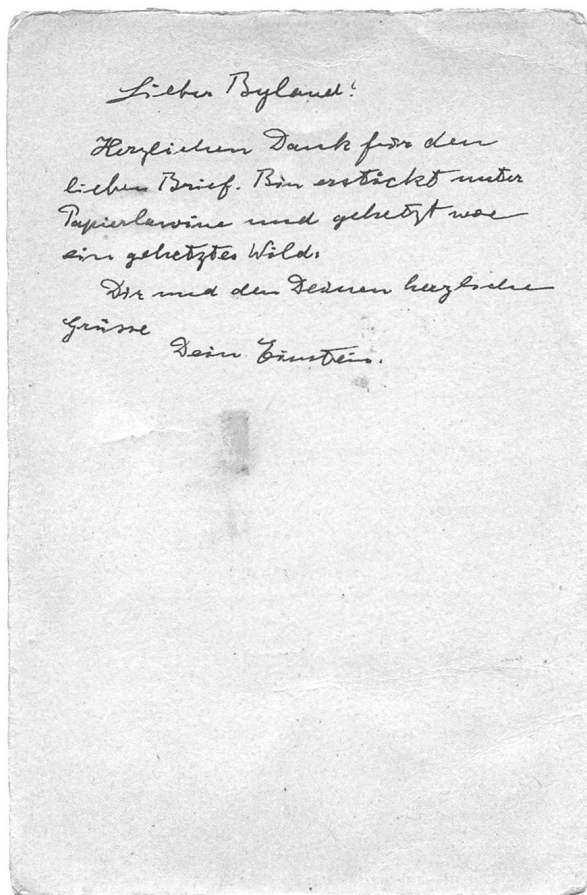 Lieber Byland!
Herzlichen Dank für den
lieben Brief. Bin erstickt unter
Papierlawine und gehetzt wie
ein gehetztes Wild.
Dir und den Deinen herzliche
Grüsse
Dein Einstein.